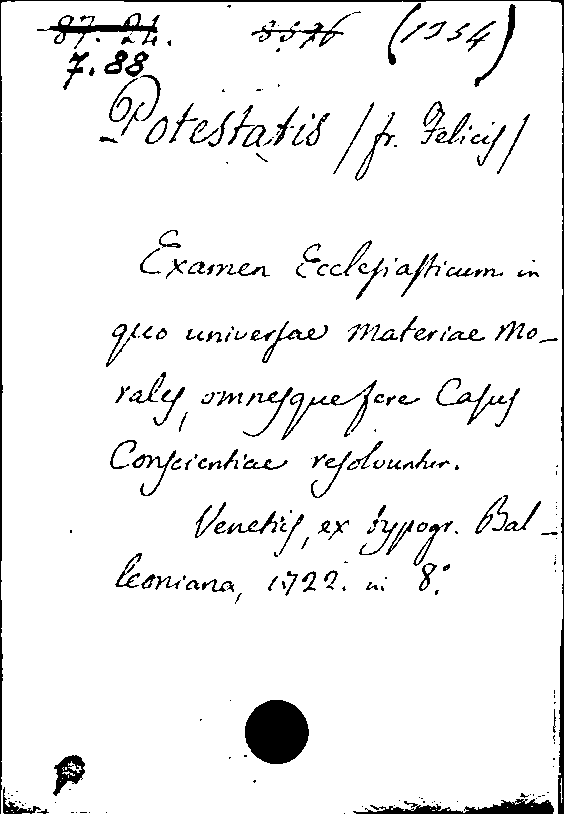 87. 24. 8376 (1354)
7.88
Potestatis / fr. Felicis /
Examen Ecclesiasticum in
quo universae materiae Mo-
rales, omnesque fere Casus
Conscientiae resolvuntur.
Venetiis, ex typogr. Bal-
leoniana, 1722. in 8°.